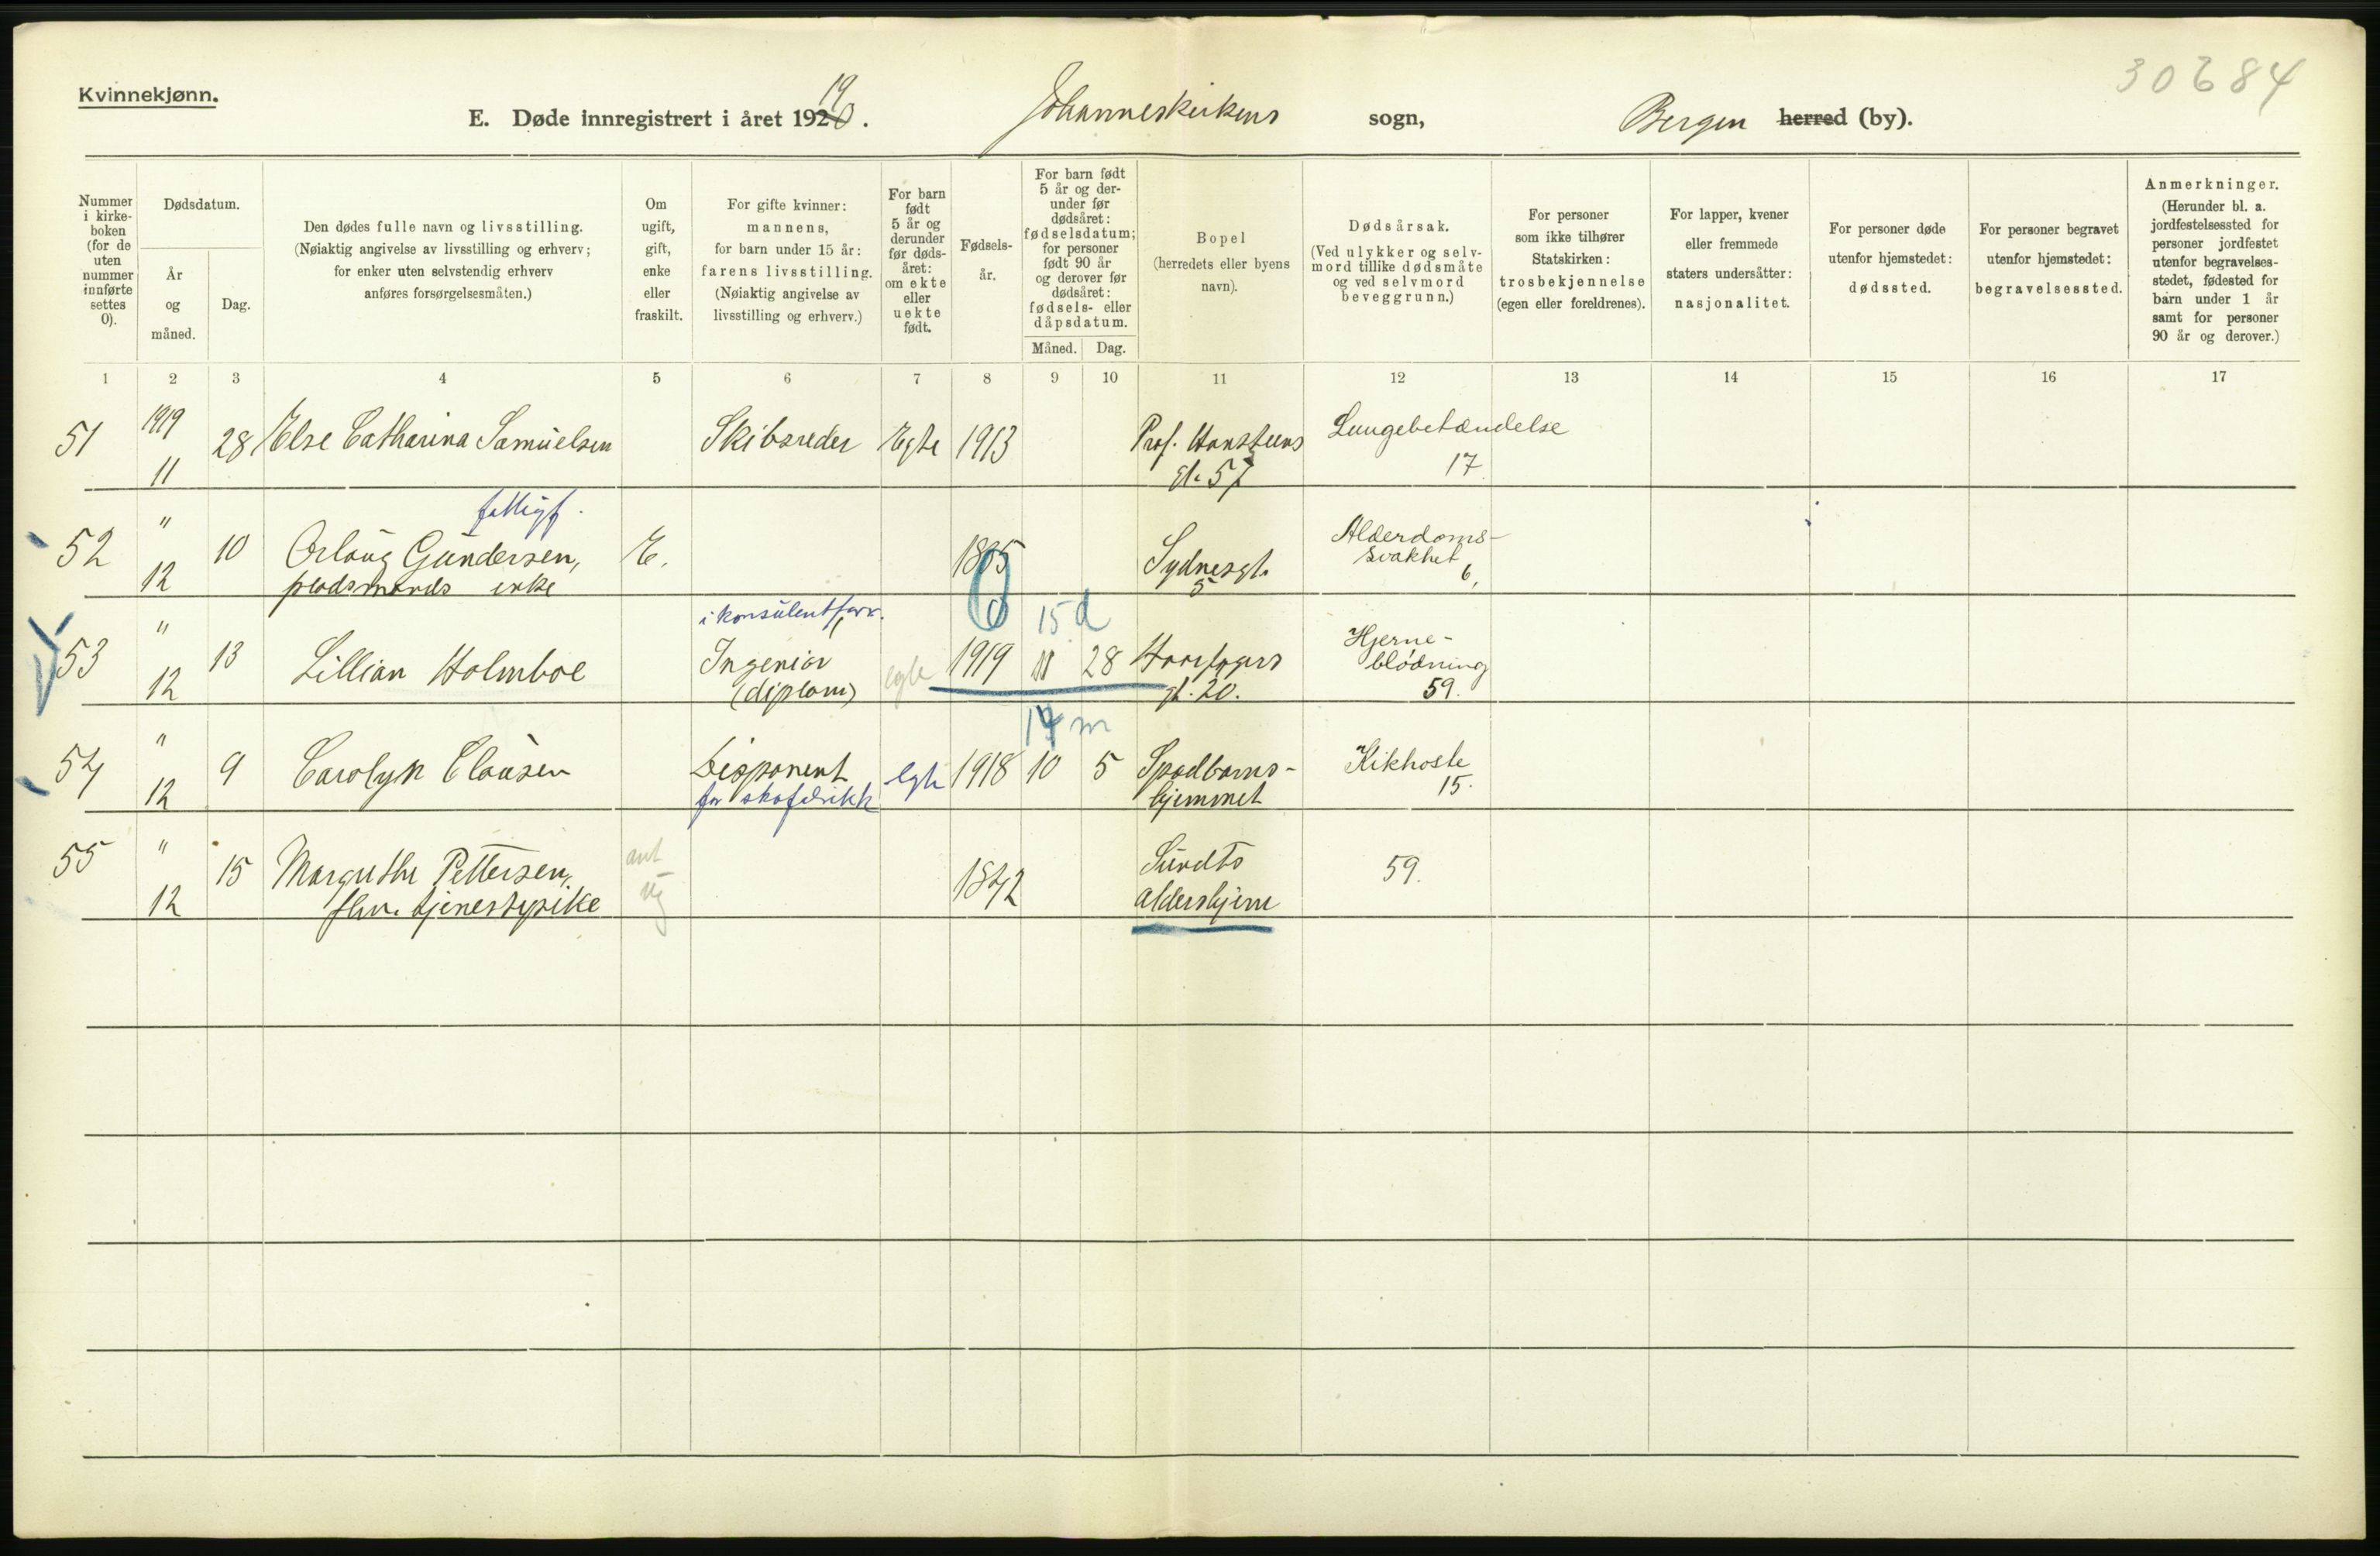 30684
Kvinnekjønn.
E. Døde innregistrert i året 1920. 19 Johanneskirkens sogn, Bergen herred (by).
Nummer i kirke- boken (for de uten nummer innførte settes 0).
Dødsdatum.
År og måned.
Dag.
Den dødes fulle navn og livsstilling.
(Nøiaktig angivelse av livsstilling og erhverv;
for enker uten selvstendig erhverv
anføres forsørgelsesmåten.)
Om ugift, gift, enke eller fraskilt.
For gifte kvinner:
mannens,
for barn under 15 år:
farens livsstilling.
(Nøiaktig angivelse av
livsstilling og erhverv.)
For barn født 5 år og derunder før døds- året: om ekte eller uekte født.
Fødsels- år.
For barn født 5 år og der- under før dødsåret: fødselsdatum; for personer født 90 år og derover før dødsåret: fødsels- eller dåpsdatum.
Måned. Dag.
Bopel
(herredets eller byens
navn).
Dødsårsak.
(Ved ulykker og selv-
mord tillike dødsmåte
og ved selvmord
beveggrunn.)
For personer
som ikke tilhører
Statskirken:
trosbekjennelse
(egen eller foreldrenes).
For lapper, kvener
eller fremmede
staters undersåtter:
nasjonalitet.
For personer døde
utenfor hjemstedet:
dødssted.
For personer begravet
utenfor hjemstedet:
begravelsessted.
Anmerkninger.
(Herunder bl. a.
jordfestelsessted for
personer jordfestet
utenfor begravelses-
stedet, fødested for
barn under 1 år
samt for personer
90 år og derover.)
1 2 3 4 5 6 7 8 9 10 11 12 13 14 15 16 17
51 1919 11 28 Else Catharina Samuelsen Skibsreder Egte 1913 Prof. Hansteens gt. 57 Lungebetændelse 17.
fattigf.
52 " 12 10 Orlaug Gundersen, E. Sydnesgt. 5 Alderdoms- svakhet 6,
pladsmands enke
i konsulentforr.
15 d
53 " 12 13 Lillian Holmboe Ingeniør (diplom) egte 1919 11 28 gt. 20. Hjerne- blødning 59.
14 m
54 " 12 9 Carolyn Clausen Disponent egte 1918 10 5 Spædbarns- hjemmet Kikhoste 15.
for skofabrikk
55 " 12 15 Margrethe Pettersen, ant ug 1842 Sundts aldershjem 59.
fhv. tjenestepike